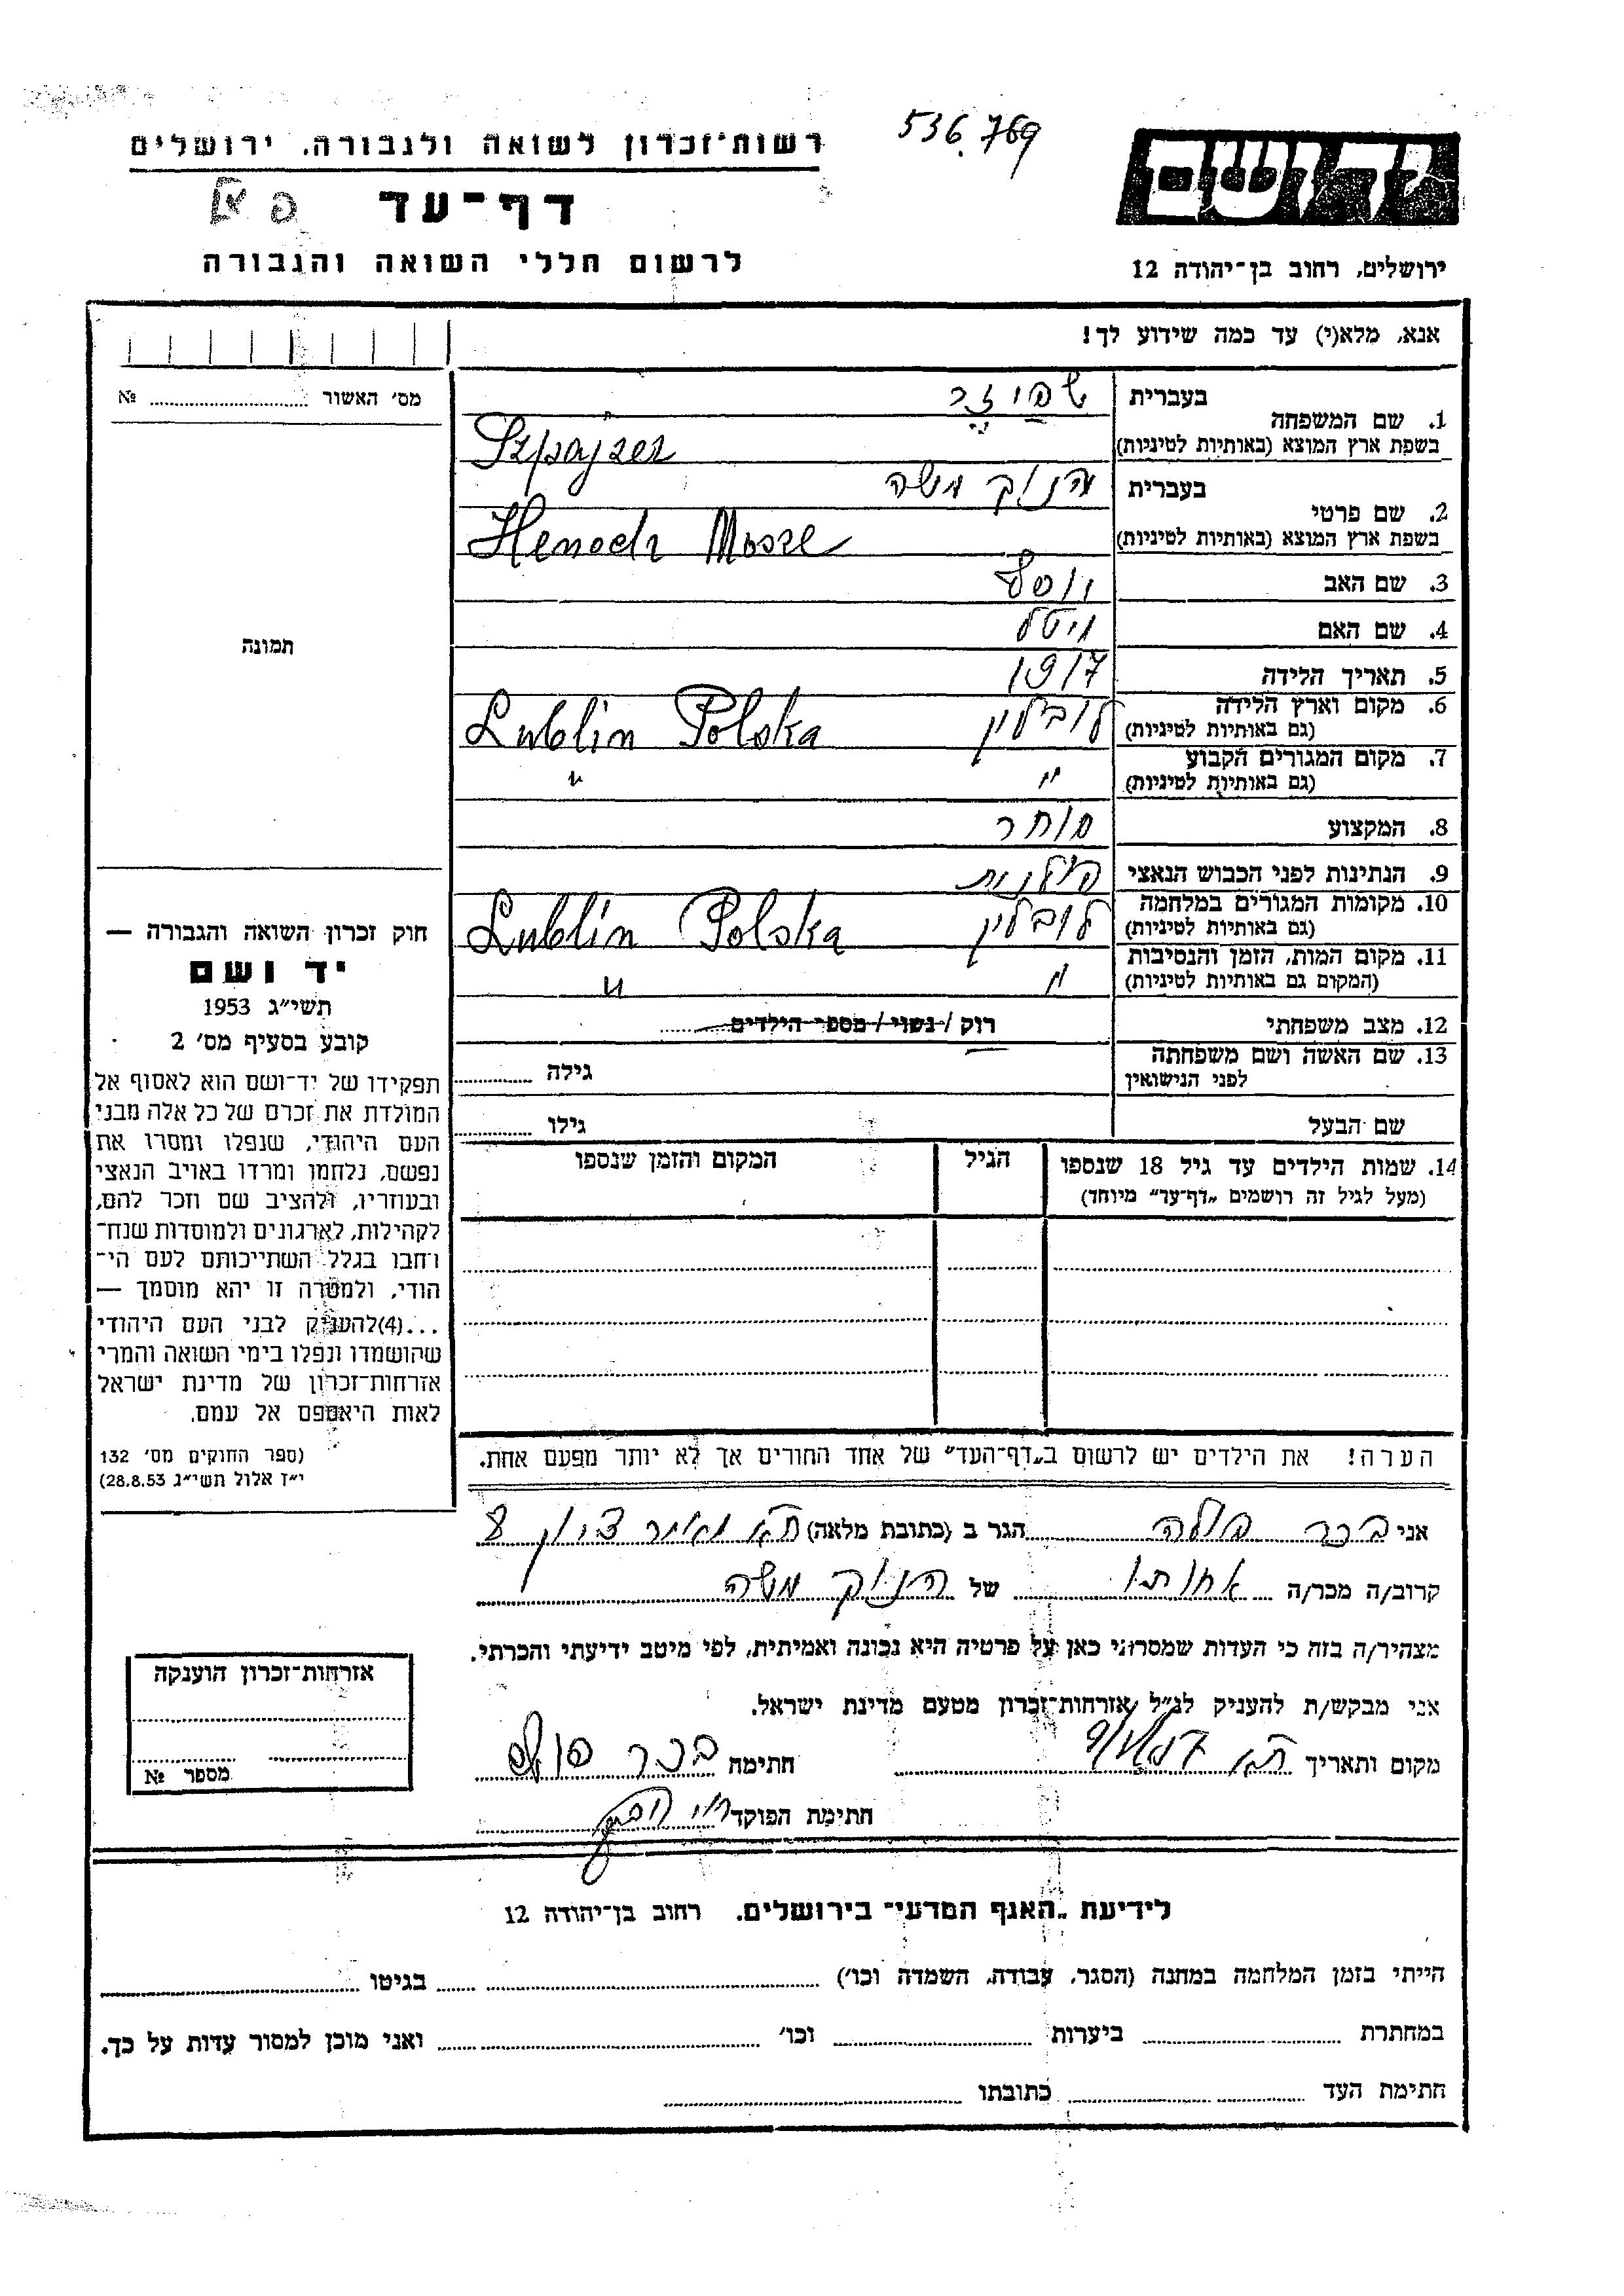 536.769
רשות־זכרון לשואה ולגבורה, ירושלים
דף־עד
לרשום חללי השואה והגבורה
יד ושם
ירושלים, רחוב בן־יהודה 12
אנא, מלא(י) עד כמה שידוע לך!
מס׳ האשור № 
1. שם המשפחה בעברית שפיזר
בשפת ארץ המוצא (באותיות לטיניות) Szpajzer
2. שם פרטי בעברית הנוך משה
בשפת ארץ המוצא (באותיות לטיניות) Henoch Mosze
3. שם האב יוסף
4. שם האם
5. תאריך הלידה 1917
6. מקום וארץ הלידה (גם באותיות לטיניות) לובלין Lublin Polska
7. מקום המגורים הקבוע (גם באותיות לטיניות) " "
8. המקצוע סוחר
9. הנתינות לפני הכבוש הנאצי פולנית
10. מקומות המגורים במלחמה (גם באותיות לטיניות) לובלין Lublin Polska
11. מקום המות, הזמן והנסיבות (המקום גם באותיות לטיניות) " "
12. מצב משפחתי רוק / נשוי / מספר הילדים
13. שם האשה ושם משפחתה לפני הנישואין גילה
שם הבעל גילו
14. שמות הילדים עד גיל 18 שנספו הגיל המקום והזמן שנספו
(מעל לגיל זה רושמים „דף־עד״ מיוחד)
תמונה
חוק זכרון השואה והגבורה —
יד ושם
תשי״ג 1953
קובע בסעיף מס׳ 2
תפקידו של יד־ושם הוא לאסוף אל
המולדת את זכרם של כל אלה מבני
העם היהודי, שנפלו ומסרו את
נפשם, נלחמו ומרדו באויב הנאצי
ובעוזריו, ולהציב שם וזכר להם,
לקהילות, לארגונים ולמוסדות שנח־
רחבו בגלל השתייכותם לעם הי־
הודי, ולמטרה זו יהא מוסמך —
...(4)להעניק לבני העם היהודי
שהושמדו ונפלו בימי השואה והמרי
אזרחות־זכרון של מדינת ישראל
לאות היאספם אל עמם.
(ספר החוקים מס׳ 132
י״ז אלול תשי״ג 28.8.53)
הערה! את הילדים יש לרשום ב„דף־העד״ של אחד החורים אך לא יותר מפעם אחת.
אני בכר פולה הגר ב (כתובת מלאה) ת״א
קרוב/ה מכר/ה אחותו של הנוך משה
מצהיר/ה בזה כי העדות שמסרתי כאן על פרטיה היא נכונה ואמיתית, לפי מיטב ידיעתי והכרתי.
אני מבקש/ת להעניק לנ״ל אזרחות־זכרון מטעם מדינת ישראל.
מקום ותאריך ת״א חתימה בכר פולה
חתימת הפוקד
אזרחות־זכרון הוענקה
מספר №
לידיעת „האגף המדעי״ בירושלים, רחוב בן־יהודה 12
הייתי בזמן המלחמה במחנה (הסגר, עבודה, השמדה וכו׳) בגיטו
במחתרת ביערות וכו׳ ואני מוכן למסור עדות על כך.
חתימת העד כתובתו